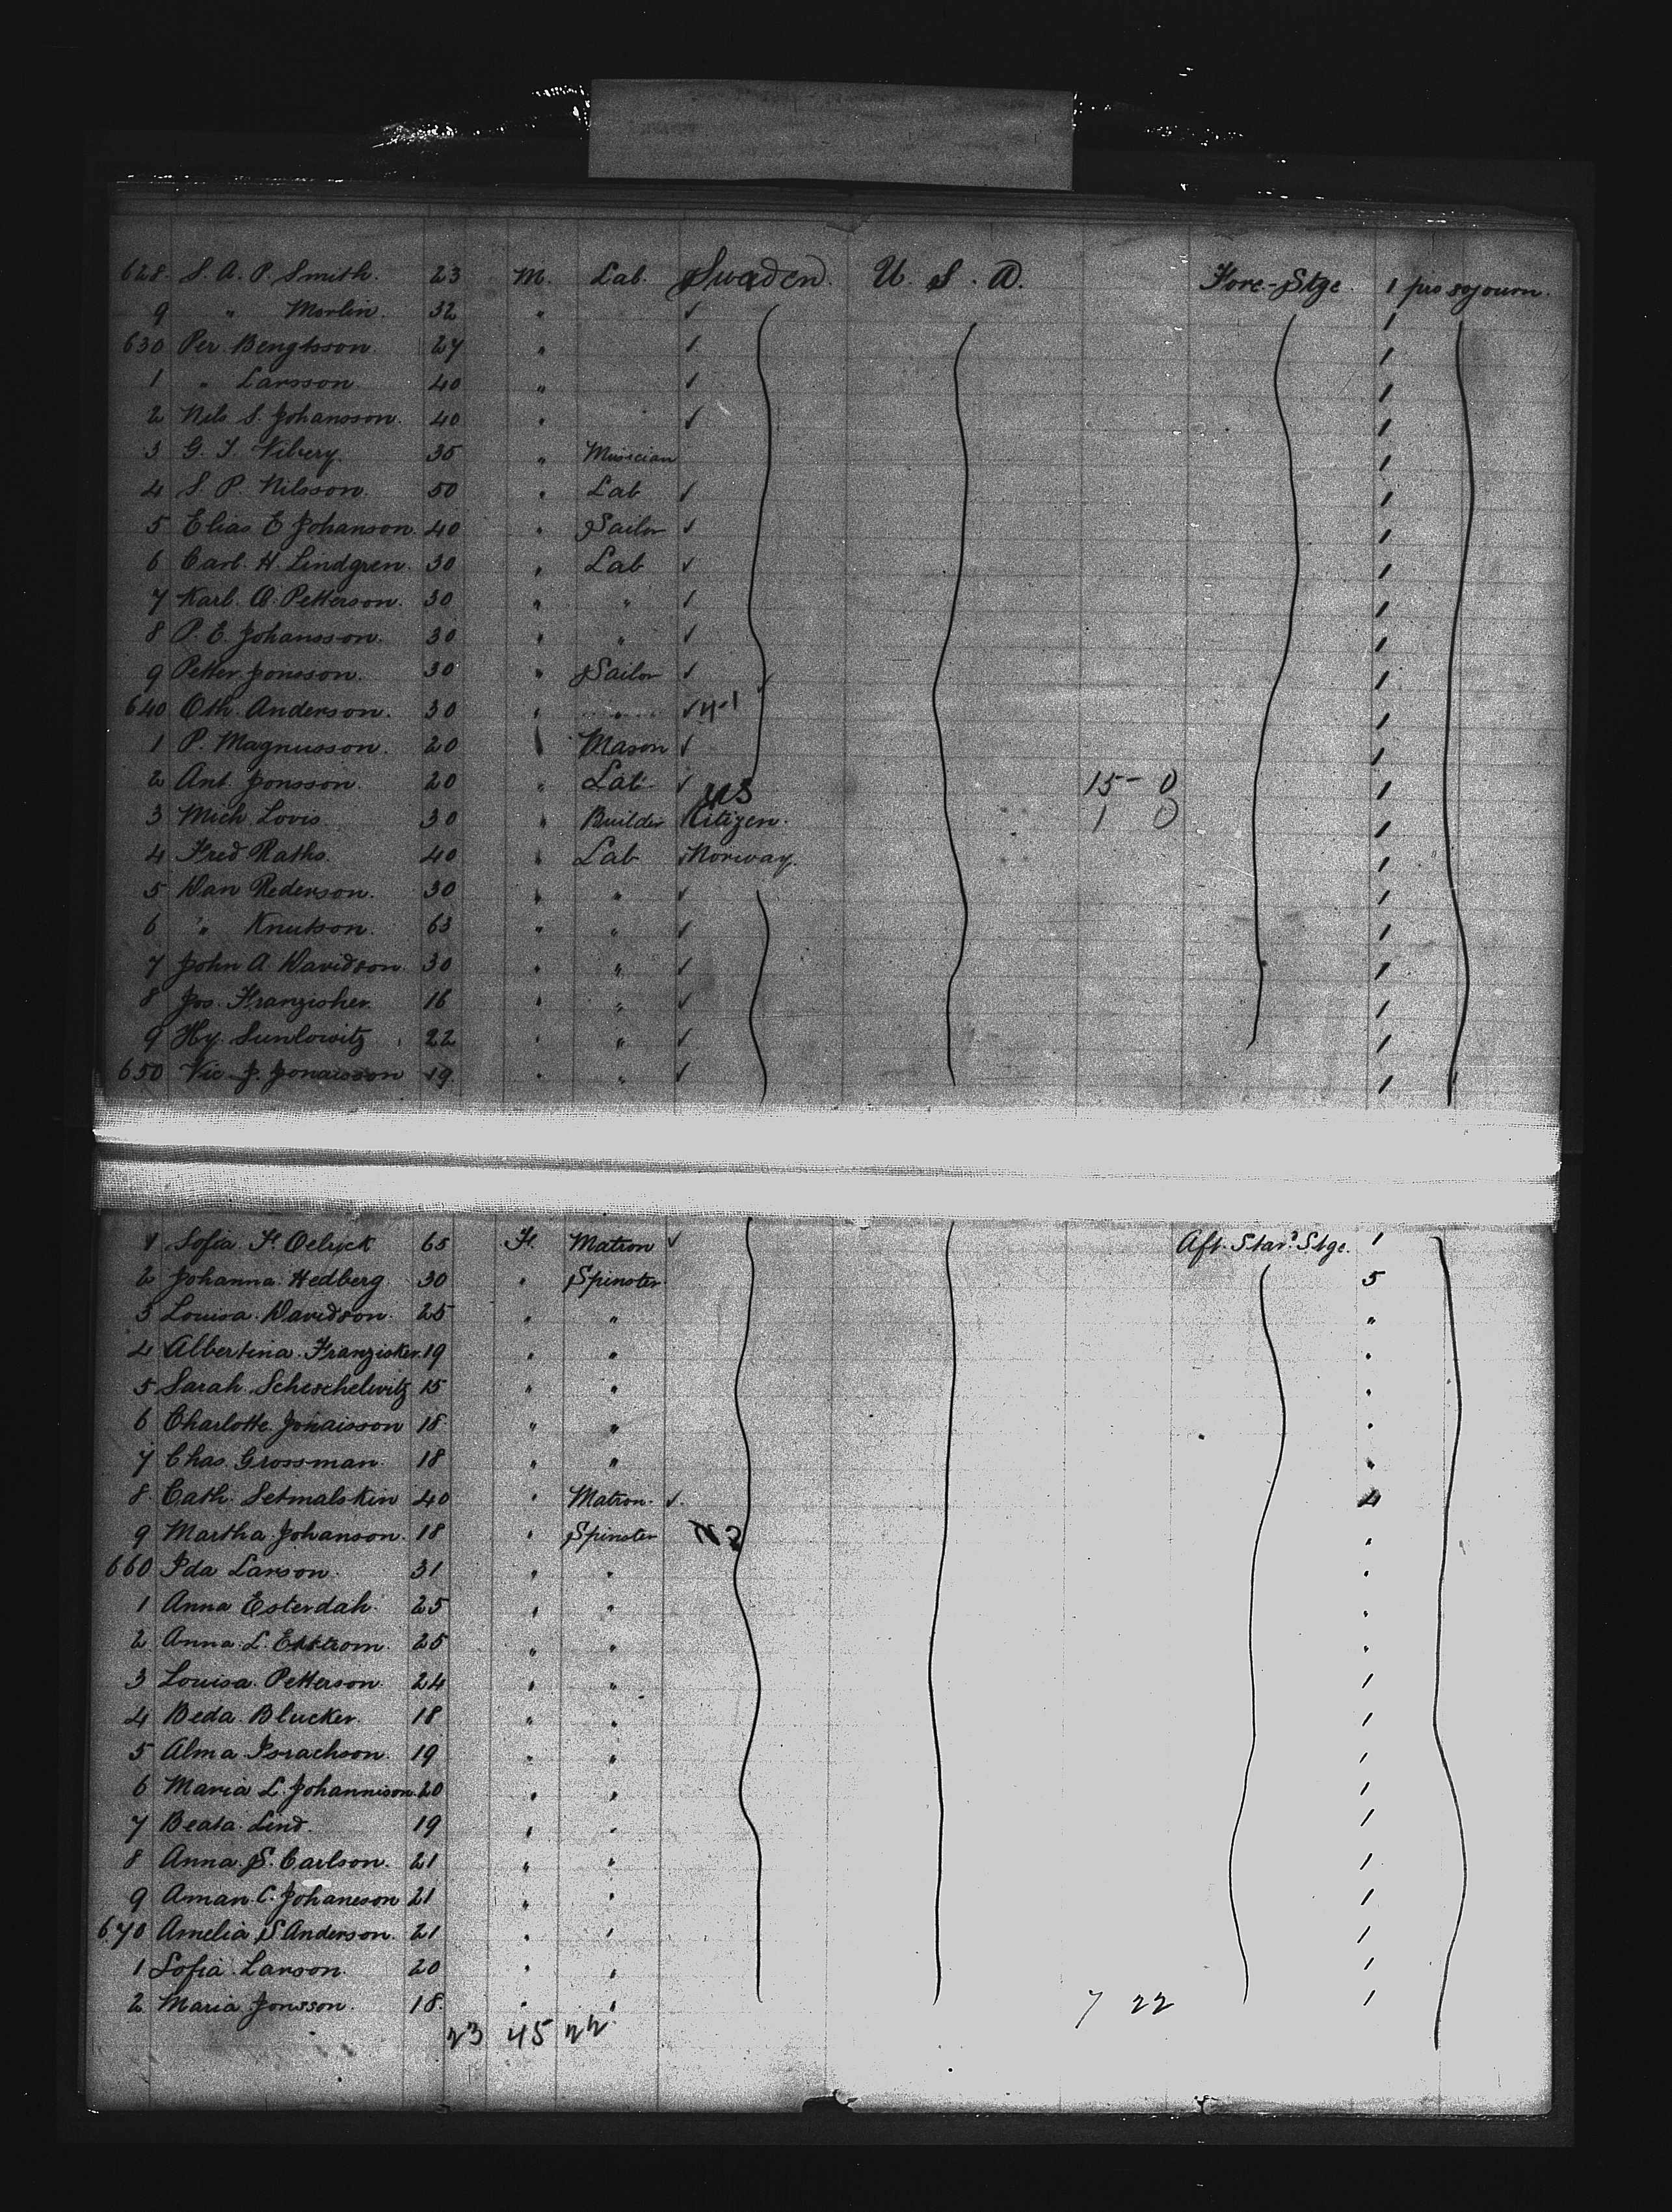 628. S. A. P. Smith. 23 M. Lab. Sweden. U. S. A. Fore-Stge. 1 pro sojourn.
9 " Morlin. 32 " ✓ 1
630 Per Bengtsson 27 " ✓ 1
1 " Larsson 40 " ✓ 1
2 Nils S. Johansson. 40 " ✓ 1
3 G. T. Viberg. 35 " Musician 1
4 S. P. Nilsson. 50 " Lab ✓ 1
5 Elias E Johanson. 40 " Sailor ✓ 1
6 Carl. H. Lindgren. 30 " Lab ✓ 1
7 Karl. A. Petterson. 30 " " ✓ 1
8 P. E. Johansson. 30 " " ✓ 1
9 Petter Jonsson. 30 " Sailor ✓ 1
640 Oth. Anderson. 30 " " ✓ 1
1 P. Magnusson. 20 " Mason ✓ 1
2 Ant. Jonsson. 20 " Lab. ✓ 15 - 0 1
US
3 Mich Lovis. 30 " Builder Citizen. 1 0 1
4 Fred Raths. 40 " Lab ✓ Norway. 1
5 Dan Pederson. 30 " " ✓ 1
6 " Knutson. 63 " " ✓ 1
7 John A. Davidson. 30 " " ✓ 1
8 Jos. Franzisker. 16 " " ✓ 1
9 Hy. Sunlowitz 22 " " ✓ 1
650 Vic J. Jonaisson 19. " " ✓ 1
1 Sofia F. 65 F. Matron ✓ Aft. Star. Stge. 1
2 Johanna Hedberg 30 " Spinster 5
3 Louisa Davidson. 25 " " "
4 Albertina Franzisker. 19 " " "
5 Sarah Scheschelwitz 15 " " "
6 Charlotte Jonaisson 18. " " "
7 Chas. Grossman. 18 " " "
8. Cath. Setmalskin 40 " Matron. ✓ 4
9 Martha Johanson. 18 " Spinster "
660 Ida Larson. 31 " " "
1 Anna Esterdah. 25 " " "
2 Anna L. Ekstrom. 25 " " "
3 Louisa Petterson 24 " " 1
4 Beda Blucker. 18 " " 1
5 Alma Israchson. 19 " " 1
6 Maria L. Johannison. 20 " " 1
7 Beata Lind. 19 " " 1
8 Anna S. Carlson. 21 " " 1
9 Aman C. Johaneson 21 " " 1
670 Amelia S Anderson. 21 " " 1
1 Sofia Larson. 20 " " 1
2 Maria Jonsson. 18. " " 7 22 1
23 45 22